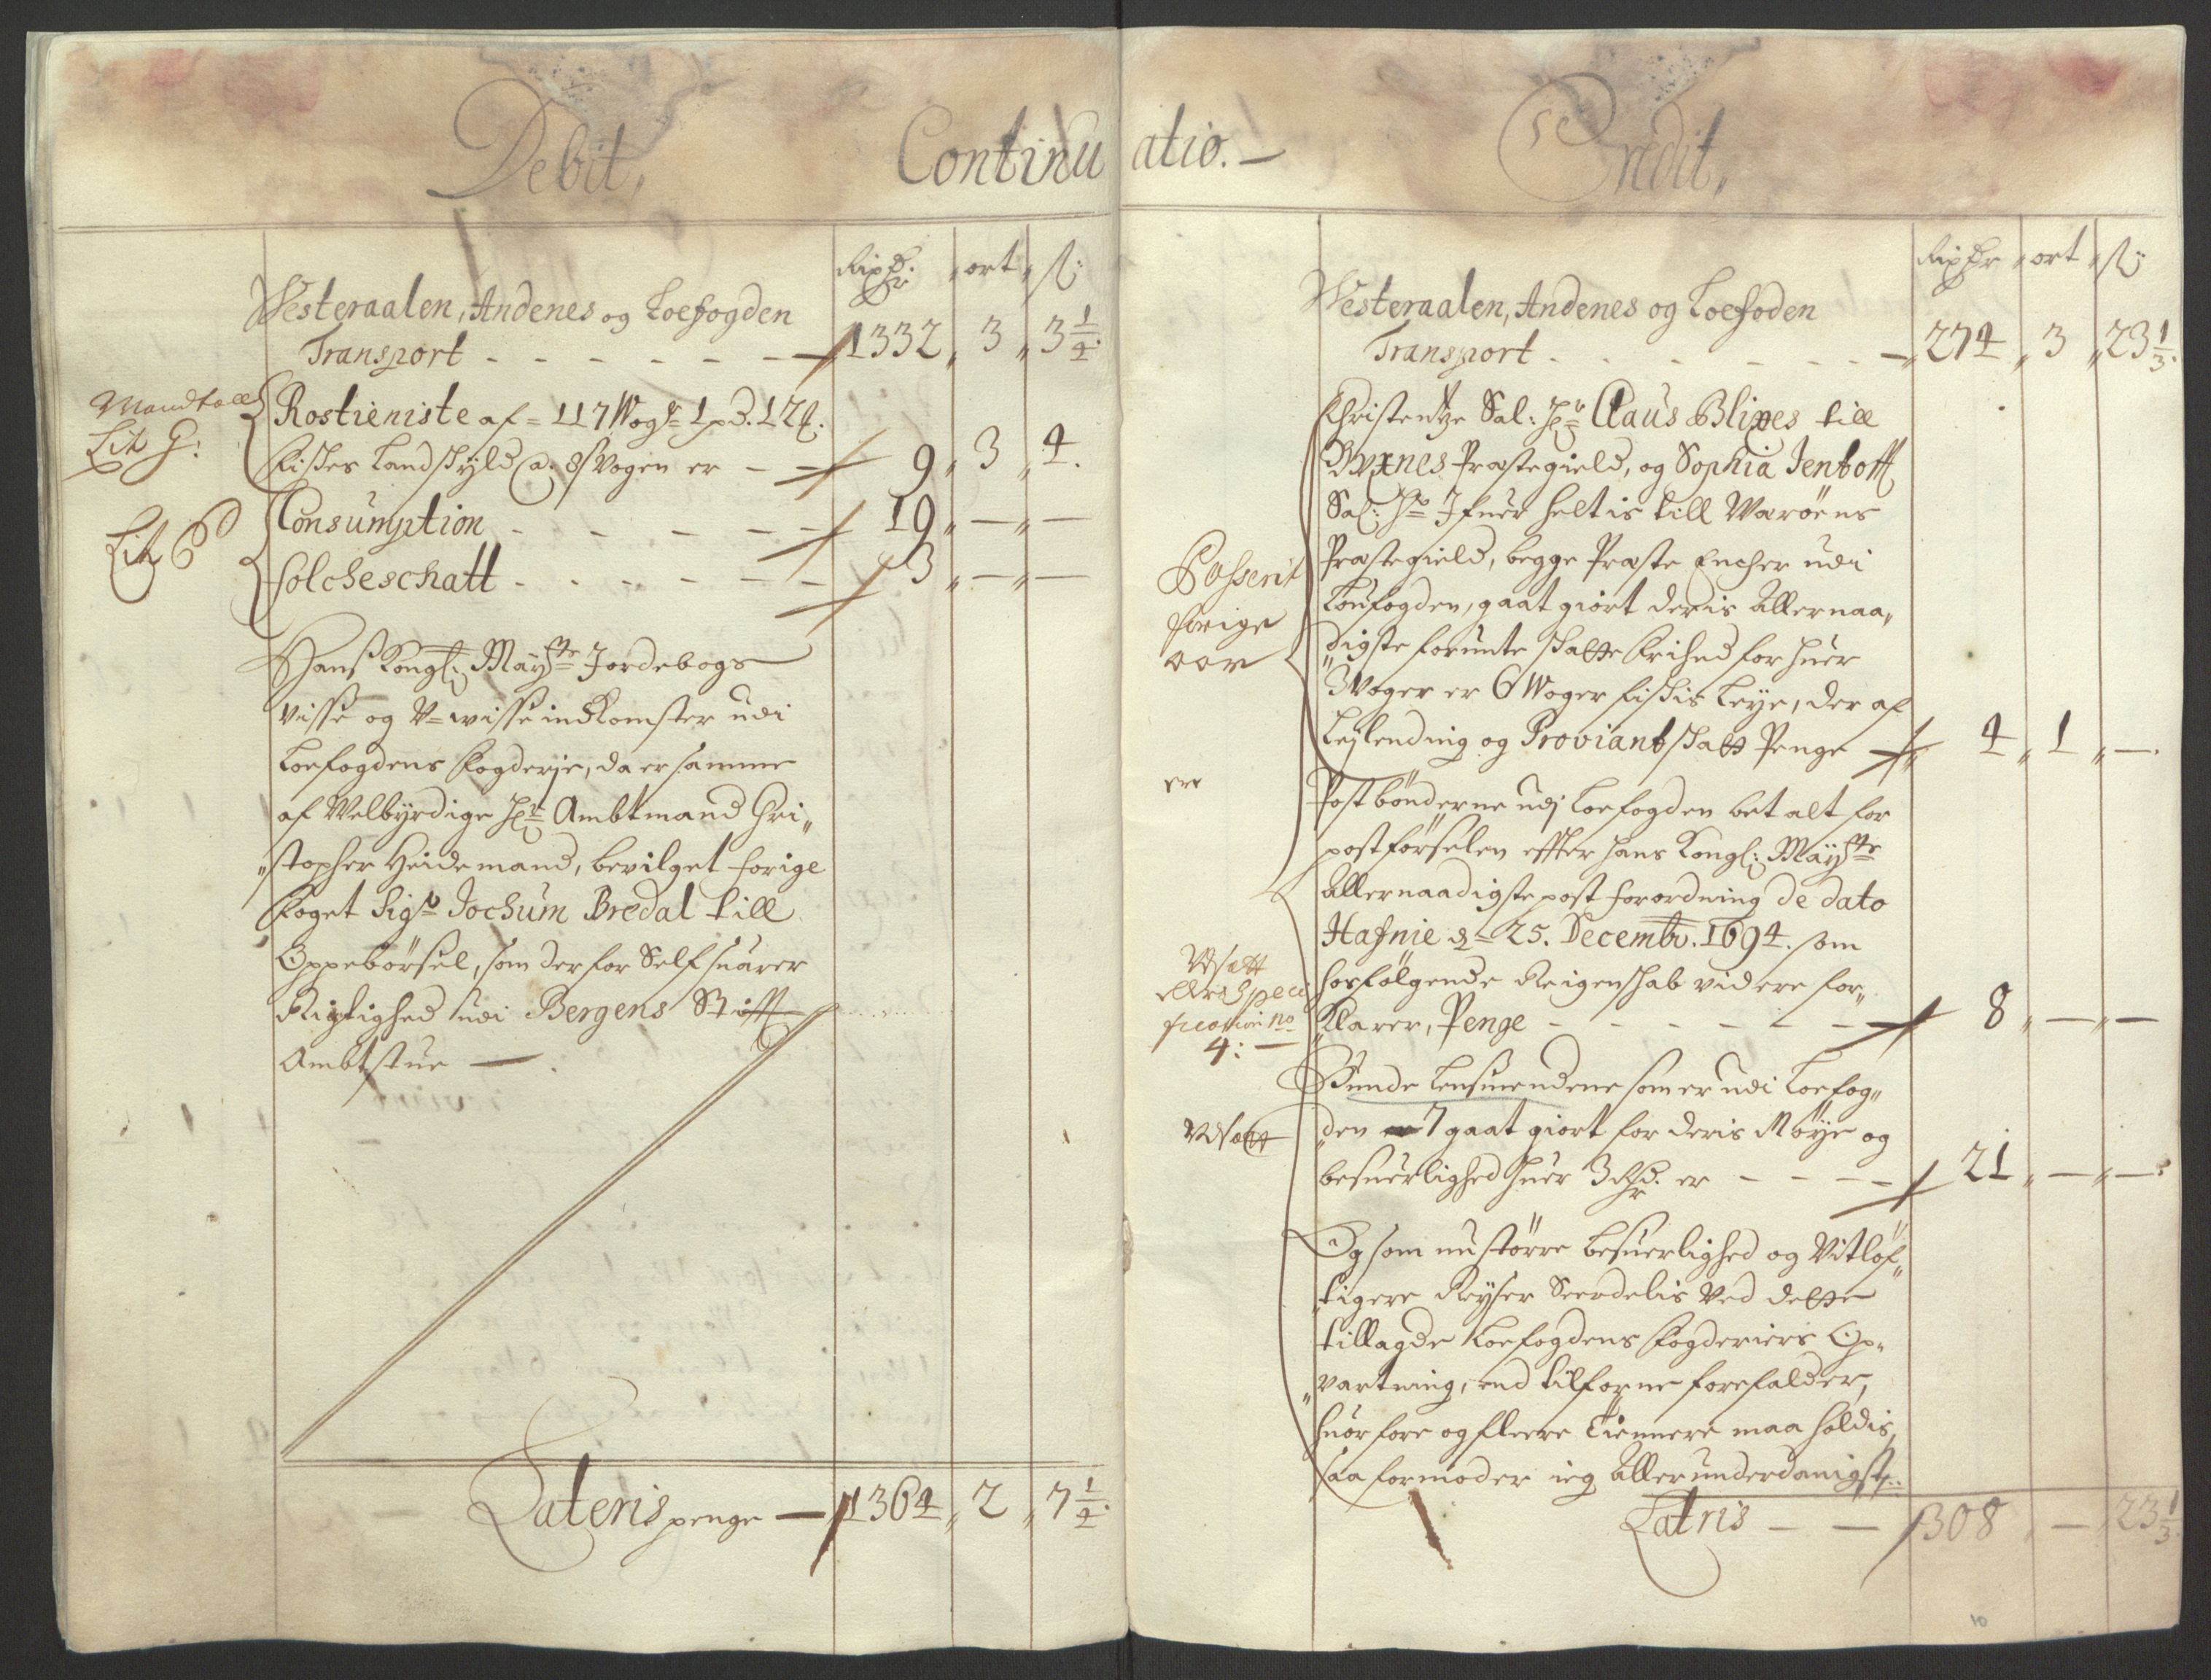 Debit, Continuatio. — Credit,
Rixdr: ort ß:
Westeraalen, Andenes og Loefogden
Transport - - - - - - - 1332 „ 3 „ 3 1/4.
Mandtall
Lit G:
Rostieniste af = 117 Wogr 1 pd. 12 ℔.
Fiskes Landskyld a. 8 ß Vogen er - - 9 „ 3 „ 4.
Lit
Consumption - - - - - 19 „ — „ —
Folcheschatt - - - - - - 3 „ — „ —
Hans Kongl: Mayts Jordebogs
visse og V=wisse indKomster udi
Loefogdens Fogderje, da er samme
af Welbyrdige Hr Ambtmand Chri„
„stopher Heidemand, bevilget forige
Foget Sigr Jochum Bredal till
Oppebörsel, som derfor Self suarer
Rigtighed udi Bergens Stifft
Ambtstue —.
Lateris penge — 1364 „ 2 „ 7 1/4.
Rixdr ort ß
Westeraalen, Andenes og Loefoden
Transport - - - - - - 274 „ 3 „ 23 1/3.
Passerit
forige
aar
Christentze Sal: Hr Claus Blixes till
Buxnes Præstegield, og Sophia Jentofft
Sal: Hr Ifuer Heltis till Warøens
Præstegield, begge Præste Encher udi
Loufogden, gaat giort deris Allernaa„
„digste forunte skatte Frihed for huer
3 Voger er 6 Woger Fiskis Leye, der af
Leylending og Proviantskatt Penge - 4 „ 1 „ —.
Postbönderne udj Loefogden betalt for
postförselen effter Hans Kongl: Mayts
Allernaadigste post forordning de dato
Hafnie d= 25. Decembr. 1694. som
Vdsatt
No
4: —
hosfölgende Reigenskab videre for„
„Klarer, Penge - - - - - - 8 „ — „ —
Bunde Lensmendene som er udi Loefog„
Vdsatt
„den 7 gaat giort for deris Möye og
besuerlighed huer 3 Rdr. er - - - - 21 „ — „ —.
Og som nu större besuerlighed og Vitlöf„
„tigere Reyser Seerdelis Ved dette
tillagde Loefogdens Fogderiers Op„
„vartning, end tilforne forefalder,
huorfore og fleere Tiennere maa holdis,
saa formoder ieg Allerunderdanigst:
Latris — — 308 „ — „ 23 1/3
10